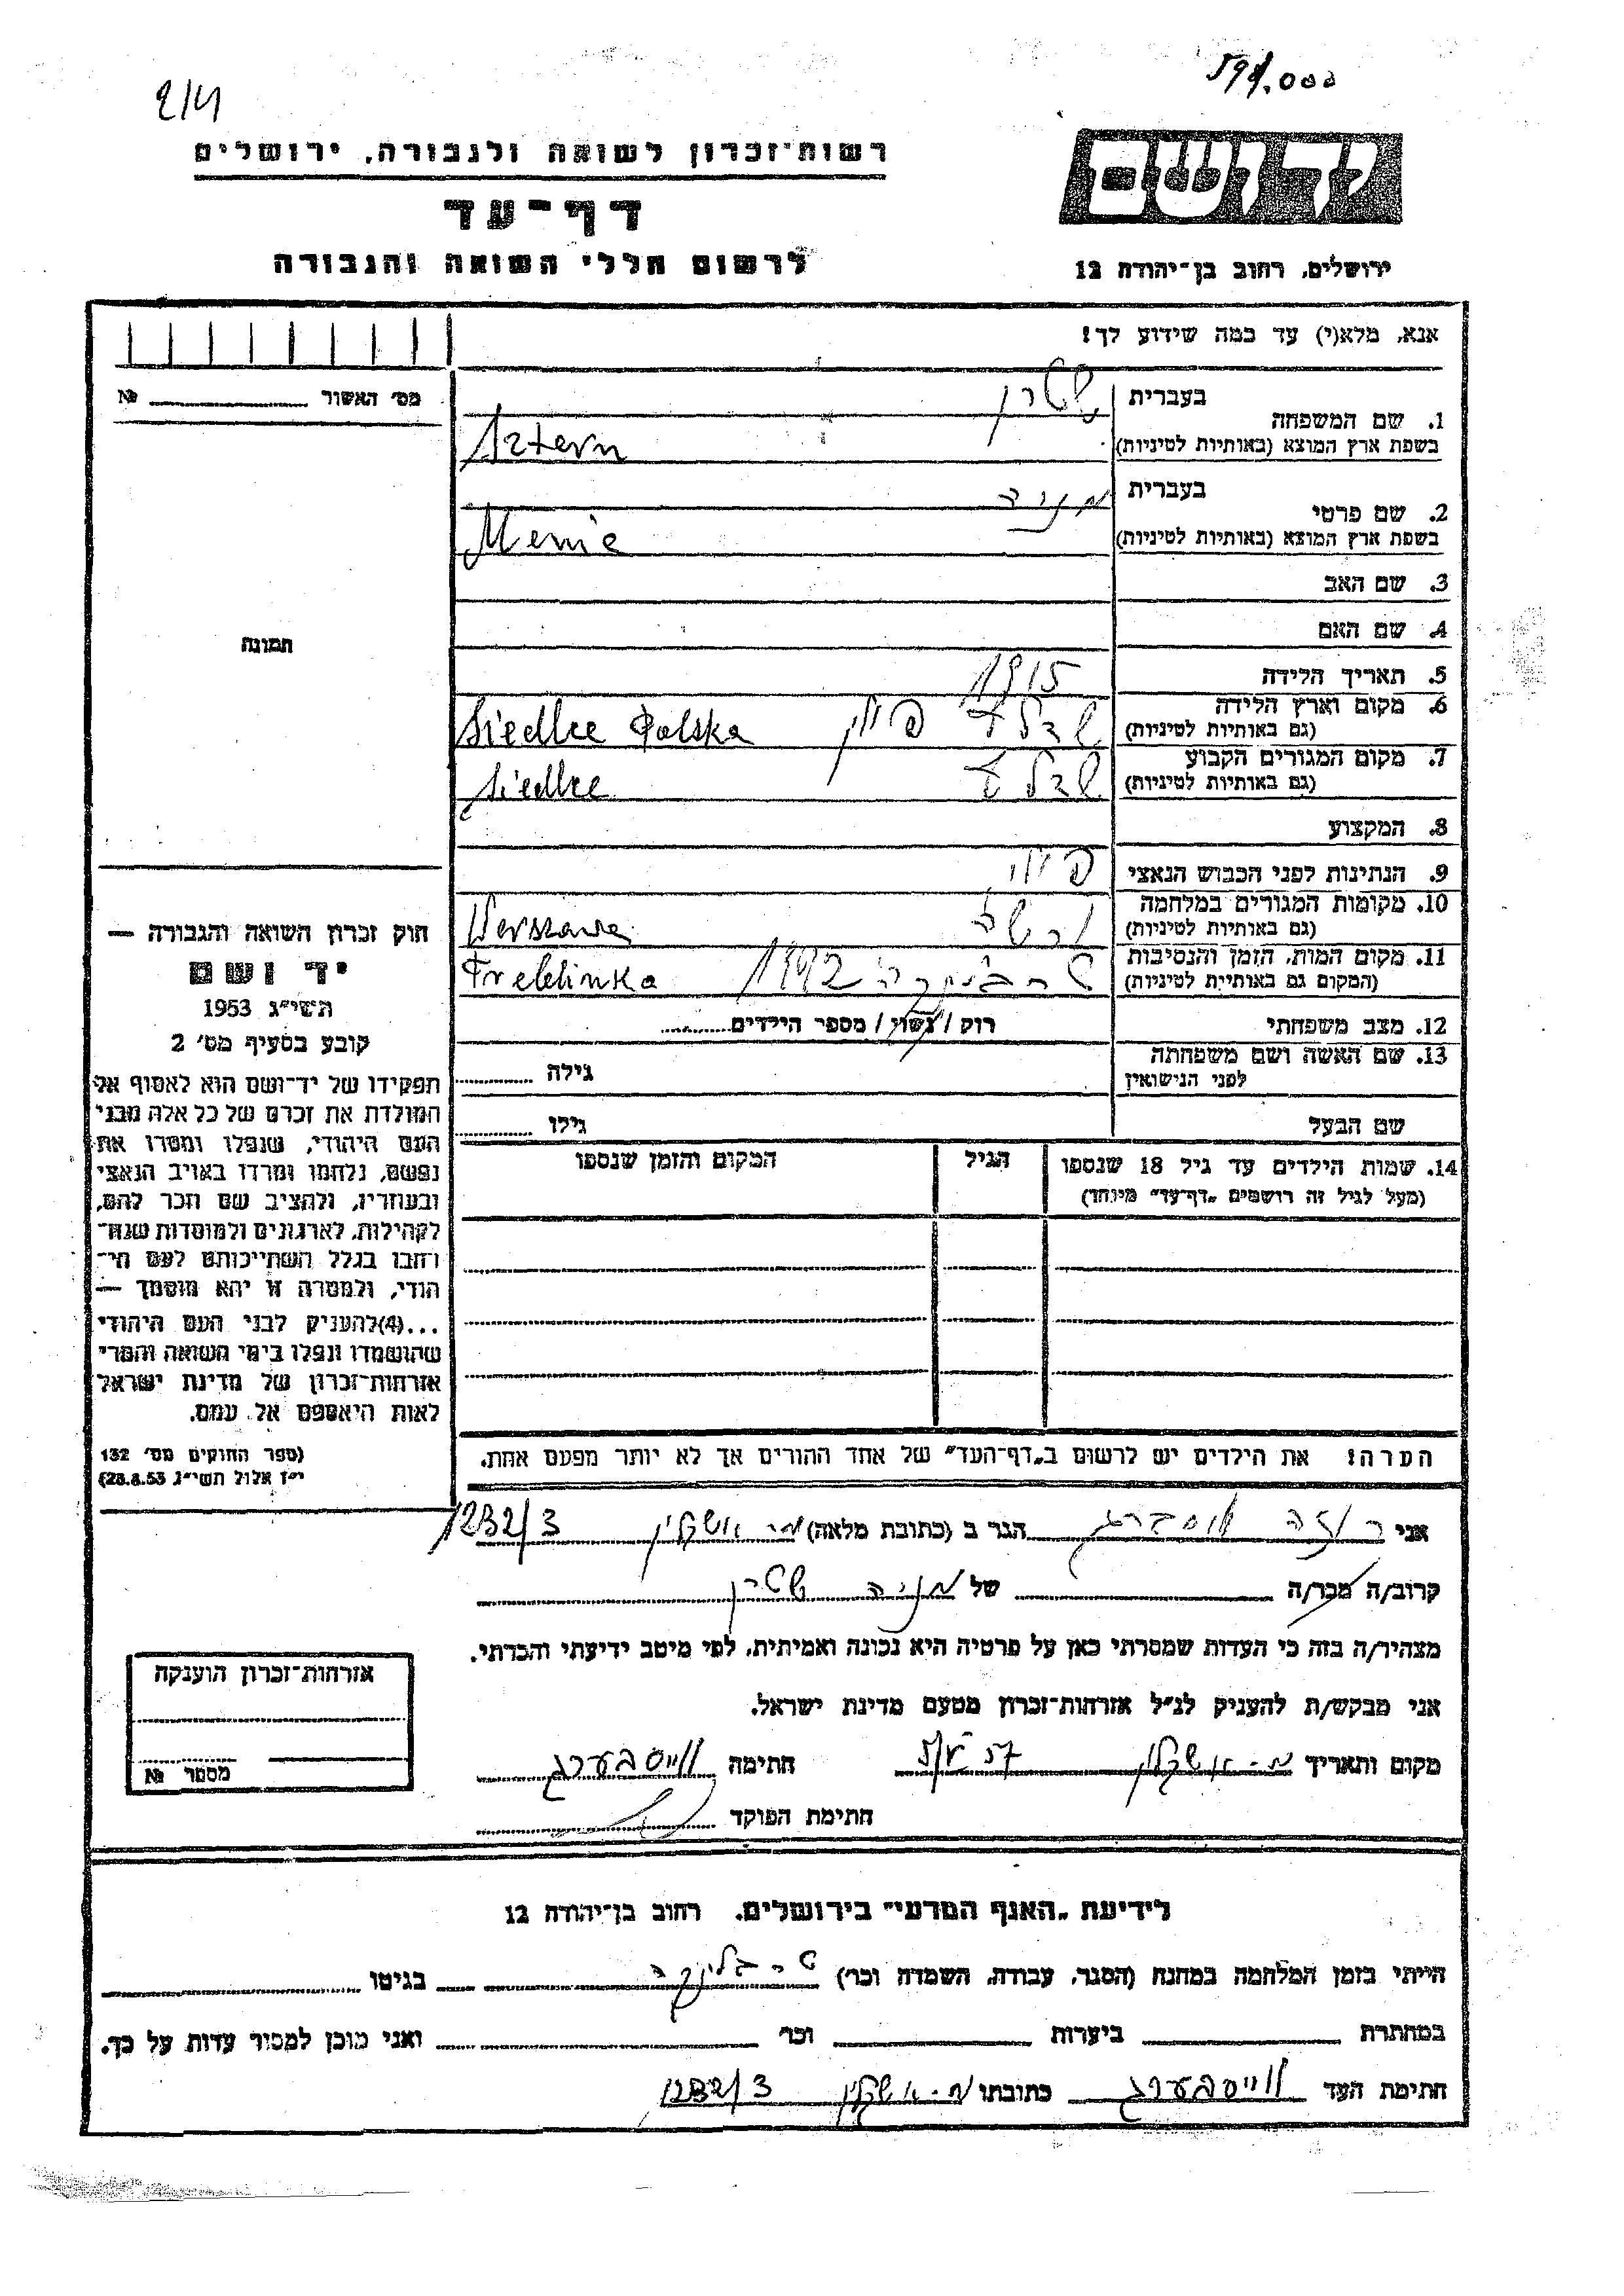 רשות־זכרון לשואה ולגבורה, ירושלים
דף־עד
לרשום חללי השואה והגבורה
ידושם
ירושלים, רחוב בן־יהודה 12
אנא, מלא(י) עד כמה שידוע לך!
מס׳ האשור № 
1. שם המשפחה
בעברית שטרן
בשפת ארץ המוצא (באותיות לטיניות) Sztern
2. שם פרטי
בעברית מניה
בשפת ארץ המוצא (באותיות לטיניות) Menie
3. שם האב
4. שם האם
תמונה
5. תאריך הלידה 1915
6. מקום וארץ הלידה
(גם באותיות לטיניות) שדלץ פולין Siedlce Polska
7. מקום המגורים הקבוע
(גם באותיות לטיניות) שדלץ Siedlce
8. המקצוע
9. הנתינות לפני הכבוש הנאצי
10. מקומות המגורים במלחמה
(גם באותיות לטיניות) ורשה
11. מקום המות, הזמן והנסיבות
(המקום גם באותיות לטיניות) טרבלינקה 1942 Treblinka
12. מצב משפחתי רוק / נשוי / מספר הילדים
13. שם האשה ושם משפחתה
לפני הנישואין גילה
שם הבעל גילו
14. שמות הילדים עד גיל 18 שנספו
(מעל לגיל זה רושמים „דף־עד" מיוחד)
הגיל
המקום והזמן שנספו
הערה! את הילדים יש לרשום ב„דף־העד" של אחד ההורים אך לא יותר מפעם אחת.
חוק זכרון השואה והגבורה —
יד ושם
תשי״ג 1953
קובע בסעיף מס׳ 2
תפקידו של יד־ושם הוא לאסוף אל
המולדת את זכרם של כל אלה מבני
העם היהודי, שנפלו ומסרו את
נפשם, נלחמו ומרדו באויב הנאצי
ובעוזריו, ולהציב שם וזכר להם,
לקהילות, לארגונים ולמוסדות שנח־
רבו בגלל השתייכותם לעם הי־
הודי, ולמטרה זו יהא מוסמך —
...(4)להעניק לבני העם היהודי
שהושמדו ונפלו בימי השואה והמרי
אזרחות־זכרון של מדינת ישראל
לאות היאספם אל עמם.
(ספר החוקים מס׳ 132
י״ז אלול תשי״ג 28.8.53)
אני רוזה וייסברג הגר ב (כתובת מלאה) מ. אשקלון 1232/3
קרוב/ה מכר/ה של מניה שטרן
מצהיר/ה בזה כי העדות שמסרתי כאן על פרטיה היא נכונה ואמיתית, לפי מיטב ידיעתי והכרתי.
אני מבקש/ת להעניק לנ״ל אזרחות־זכרון מטעם מדינת ישראל.
מקום ותאריך מ. אשקלון חתימה ווייסבערג
חתימת הפוקד
אזרחות־זכרון הוענקה
מספר №
לידיעת „האגף המדעי" בירושלים, רחוב בן־יהודה 12
הייתי בזמן המלחמה במחנה (הסגר, עבודה, השמדה וכו׳) טרבלינקה בגיטו
במחתרת ביערות וכו׳ ואני מוכן למסור עדות על כך.
חתימת העד ווייסבערג כתובתו מ. אשקלון 1232/3